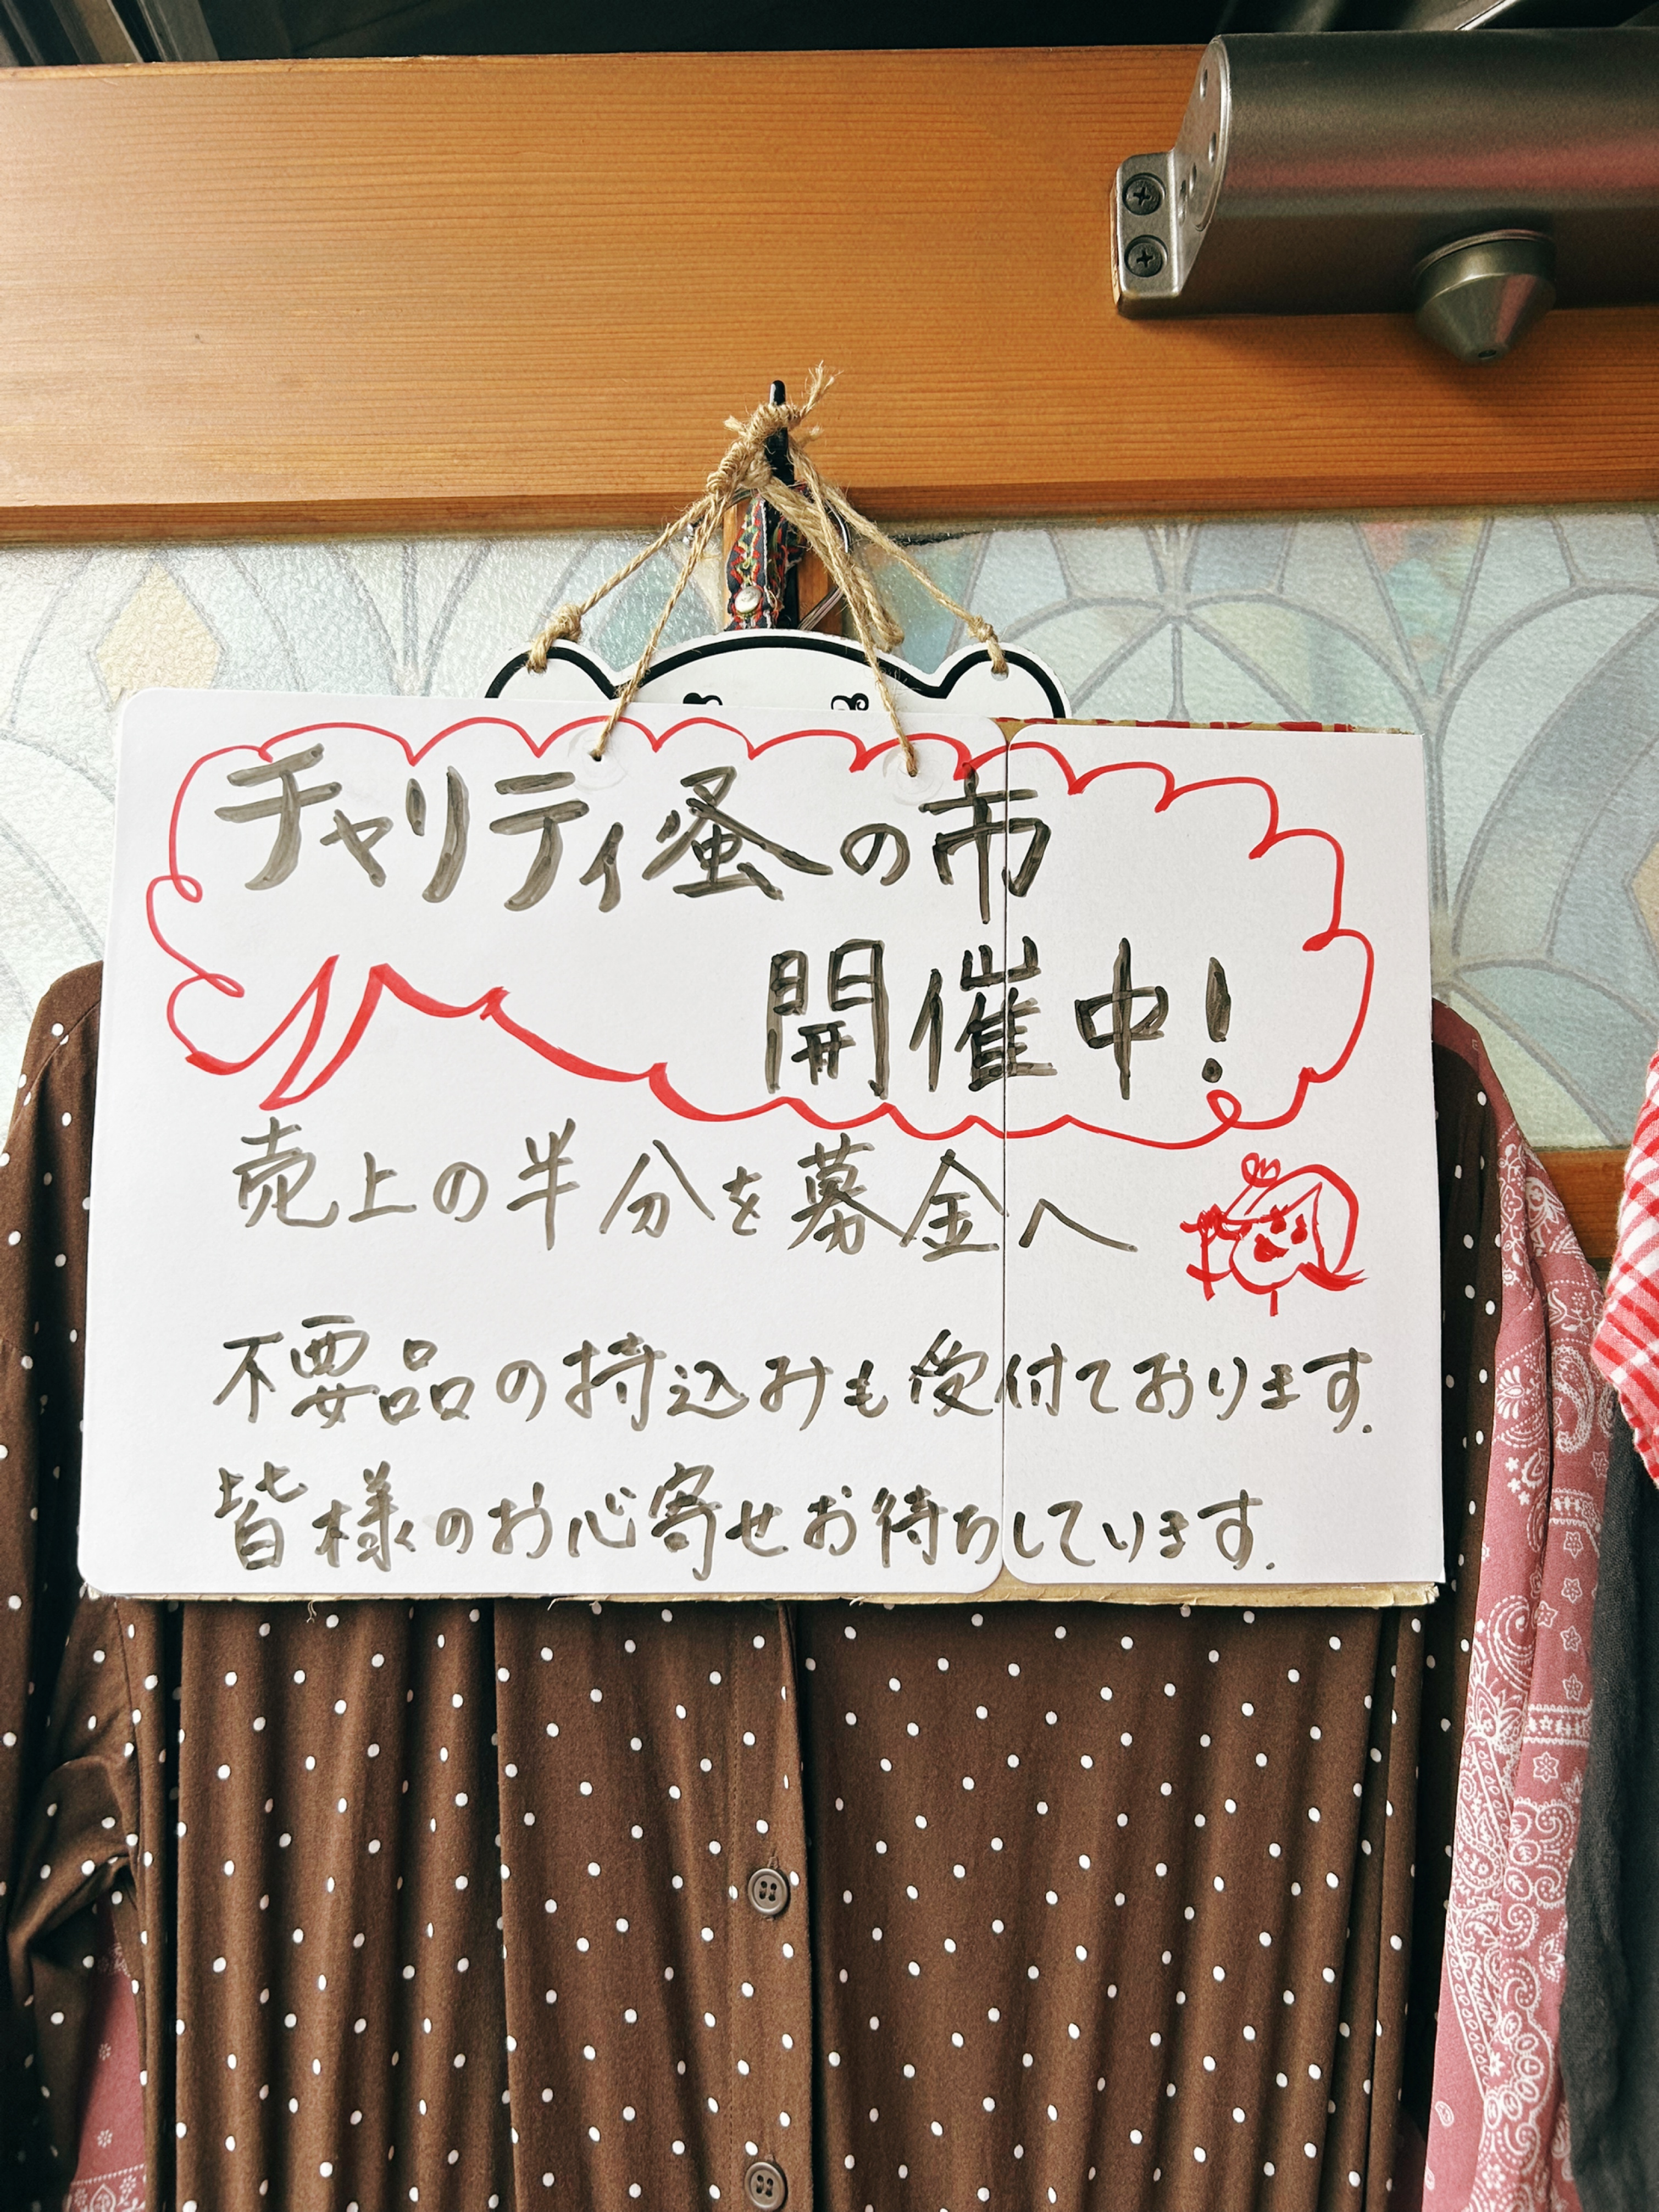 チャリティ蚤の市
開催中!
売上の半分を募金へ
不要品の持込みも受付ております.
皆様のお心寄せお待ちしています.